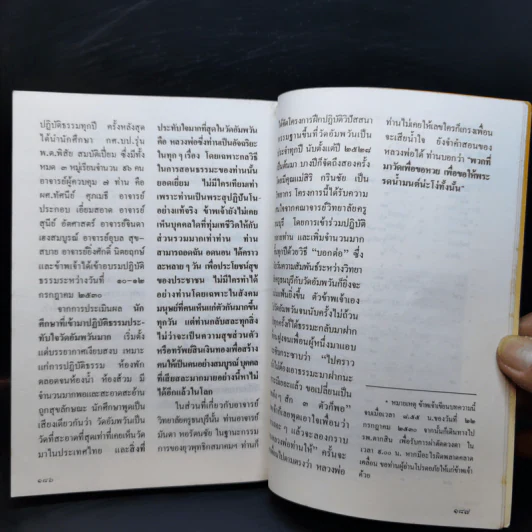 ปฏิบัติธรรมทุกปี ครั้งหลังสุด
ได้นำนักศึกษา กศ.บป.รุ่น
พ.ต.พิสัย สมบัติเปี่ยม ซึ่งมีทั้ง
หมด ๓ หมู่เรียนจำนวน ๕๖ คน
อาจารย์ผู้ควบคุม ๗ ท่าน คือ
ผศ.ทัศนีย์ ศุภเมธี อาจารย์
ประกอบ เอี่ยมสอาด อาจารย์
สุนีย์ อัตศาสตร์ อาจารย์จินดา
เฮงสมบูรณ์ อาจารย์อุบล สุข-
สบาย อาจารย์ยิ่งศักดิ์ นิตยฤกษ์
และข้าพเจ้าได้เข้าอบรมปฏิบัติ
ธรรมระหว่างวันที่ ๑๐-๑๒
กรกฎาคม ๒๕๓๐
จากการประเมินผล นัก
ศึกษาที่เข้ามาปฏิบัติธรรมประ-
ทับใจวัดอัมพวันมาก เริ่มตั้ง
แต่บรรยากาศเงียบสงบ เหมาะ
แก่การปฏิบัติธรรม ห้องพัก
ตลอดจนห้องน้ำ ห้องส้วม มี
จำนวนมากพอและสะอาดสะอ้าน
ถูกสุขลักษณะ นักศึกษาพูดเป็น
เสียงเดียวกันว่า วัดอัมพวันเป็น
วัดที่สะอาดที่สุดเท่าที่เคยเห็นวัด
มาในประเทศไทย และสิ่งที่
๑๘๖
ประทับใจมากที่สุดในวัดอัมพวัน
คือ หลวงพ่อซึ่งท่านเป็นอัจฉริยะ
ใน ทุก ๆ เรื่อง โดยเฉพาะกลวิธี
ในการสอนธรรมะของท่านนั้น
ยอดเยี่ยม ไม่มีใครเทียมเท่า
เพราะท่านเป็นพระสุปฏิปันใน
อย่างแท้จริง ข้าพเจ้ายังไม่เคย
เห็นบุคคลใดที่ทุ่มเทชีวิตให้กับ
ส่วนรวมมากเท่าท่าน ท่าน
สามารถอดฉัน อดนอน ได้คราว
ละหลาย ๆ วัน เพื่อประโยชน์สุข
ของประชาชน ไม่มีใครทำได้
อย่างท่านโดยเฉพาะในสังคม
มนุษย์ที่คนเห็นแก่ตัวกันมากขึ้น
ทุกวัน แต่ท่านกลับสละทุกสิ่ง
ไม่ว่าจะเป็นความสุขส่วนตัว
หรือทรัพย์สินเงินทองเพื่อสร้าง
คนให้เป็นคนอย่างสมบูรณ์ บุคคล
ที่เสียสละมากมายอย่างนี้หาไม่
ได้อีกแล้วในโลก
ในส่วนที่เกี่ยวกับอาจารย์
วิทยาลัยครูธนบุรีนั้น ท่านอาจารย์
มันตา หอรัตนชัย ในฐานะกรรม
การของยุวพุทธิกสมาคมฯ ท่านก็
ได้จัดโครงการฝึกปฏิบัติวิปัสสนา
กรรมฐานขึ้นที่วัดอัมพวันเป็น
ประจำทุกปี นับตั้งแต่ปี ๒๕๒๘
เป็นต้นมา บางปีก็จัดถึงสองครั้ง
โดยมีคุณแม่สิริ กรินชัย เป็น
วิทยากร โครงการนี้ได้รับความ
สนใจจากคณาจารย์วิทยาลัยครู
ธนบุรี โดยการเข้าร่วมปฏิบัติ
หลายท่าน และเพิ่มจำนวนมาก
ทุกปีด้วยวิธี "บอกต่อ" ซึ่ง
ความสัมพันธ์ระหว่างวิทยา
ครูธนบุรีกับวัดอัมพวันก็ยิ่งจะ
แน่นแฟ้นยิ่งขึ้น ตัวข้าพเจ้าเอง
วัดอัมพวันจนนับครั้งไม่ถ้วน
ทุกครั้งก็ได้ธรรมะกลับมาฝาก
เพื่อนผู้หนึ่งมาแอบ
กระซิบกระซาบว่า "ไปคราว
ไม่ต้องเอาธรรมะมาฝากนะ
แล้ว ขอเปลี่ยนเป็น
สัก ๓ ตัวก็พอ"
ก็เลยพูดเอาใจเพื่อนว่า
รอง ๆ แล้วจะลองกราบ
หลวงพ่อท่านให้" ครั้นจะ
ไปถามตรงๆว่า หลวงพ่อ
ท่านไม่เคยให้เลขใครก็เกรงเพื่อน
จะเสียน้ำใจ ยังจำคำสอนของ
หลวงพ่อได้ ท่านบอกว่า "พวกที่
มาวัดเพื่อขอหวย เพื่อขอให้พระ
รดน้ำมนต์น่ะโง่ทั้งนั้น"
* หมายเหตุ ข้าพเจ้าเขียนบทความนี้
จบเมื่อเวลา ๘.๕๕ น.ของวันที่ ๒๒
กรกฎาคม ๒๕๓๐ จากนั้นก็เดินทางไป
รพ.ตากสิน เพื่อรับการผ่าตัดดวงตา ใน
เวลา ๙.๐๐ น. หากมีอะไรผิดพลาดคลาด
เคลื่อน ขอท่านผู้อ่านโปรดอภัยให้แก่ข้าพเจ้า
ด้วย
๑๘๗